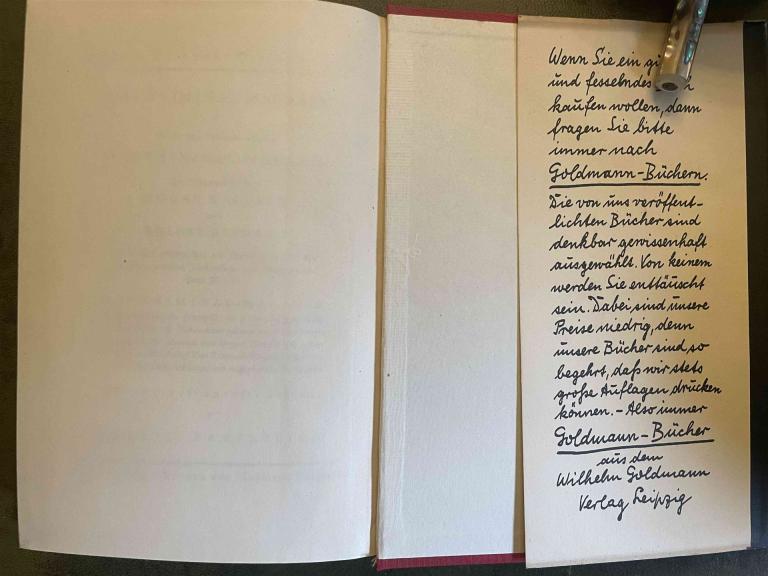 Wenn Sie ein
und fesselndes
kaufen wollen, dann
fragen Sie bitte
immer nach
Goldmann-Büchern.
Die von uns veröffent-
lichten Bücher sind
denkbar gewissenhaft
ausgewählt. Von keinem
werden Sie enttäuscht
sein. Dabei sind unsere
Preise niedrig, denn
unsere Bücher sind so
begehrt, daß wir stets
große Auflagen drucken
können. – Also immer
Goldmann-Bücher
aus dem
Wilhelm Goldmann
Verlag Leipzig